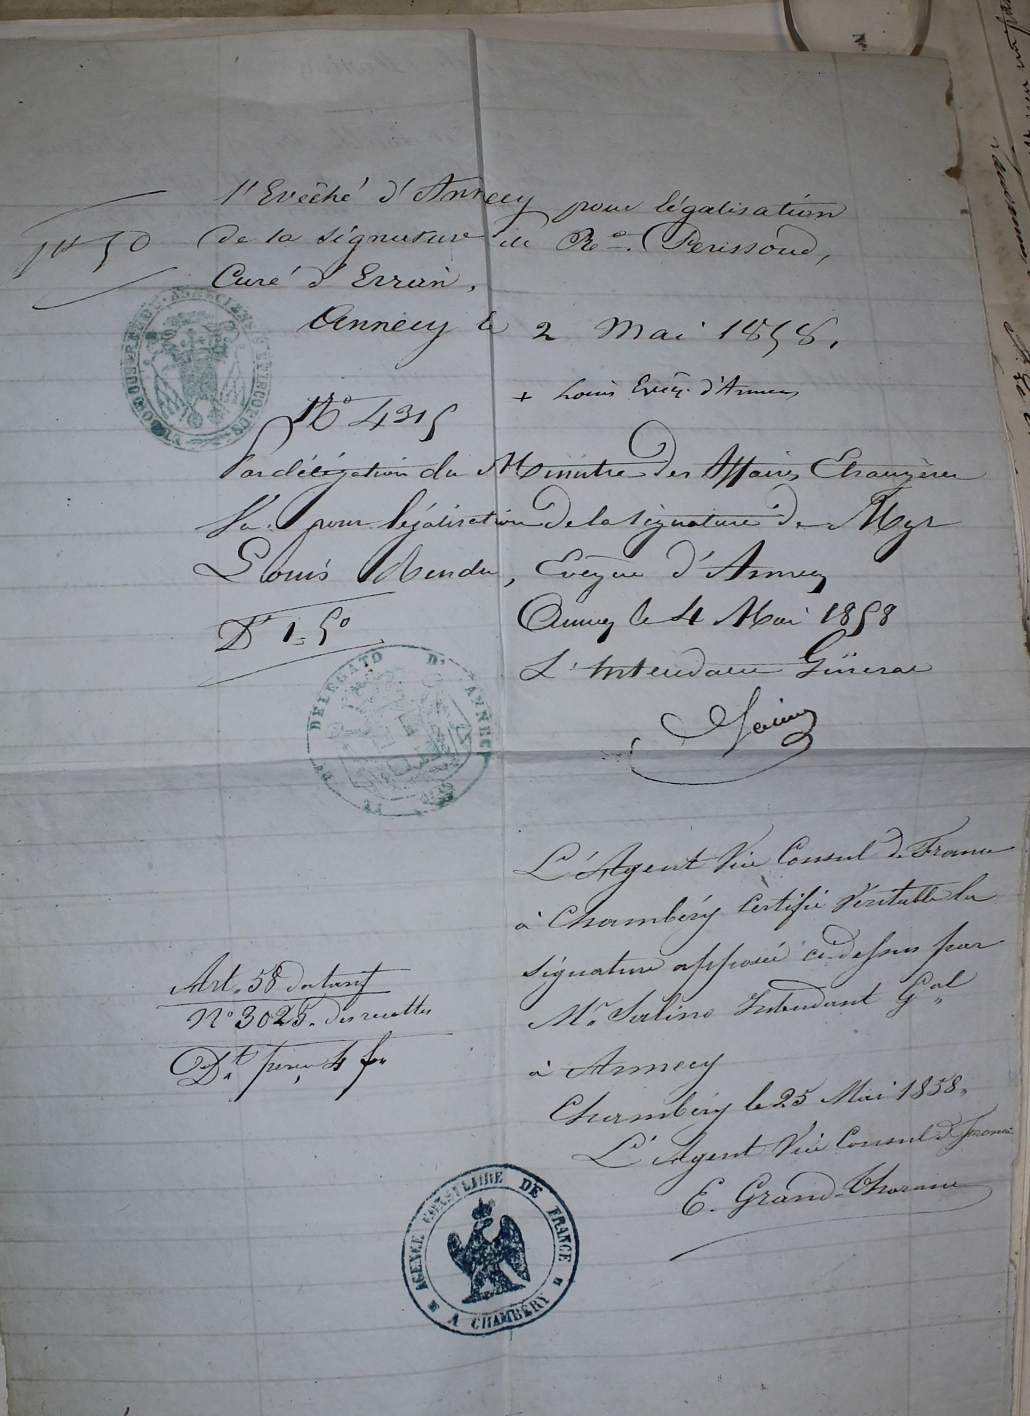 l'Evêché d'Annecy pour légalisation
de la signature de Rd. Perissoud,
Curé d'
Annecy le 2 Mai 1858.
+ Louis Evêq. d'Annecy
No 4315
Par délégation du Ministre des Affaires Etrangères
Vu pour légalisation de la signature de Mgr
Louis Rendu, Evêque d'Annecy
Dt 1-50
Annecy le 4 Mai 1858
L'Intendant Général
DELEGATO D'ANNECY
L'Agent Vice Consul de France
à Chambéry Certifie Véritable la
signature apposée ci-dessus par
Mr. Salino Intendant Gal
à Annecy
Chambéry le 25 Mai 1858.
L'Agent Vice Consul de France
E. Grand-Thorane
Art. 58 du tarif
No 3025. des recettes
Dt. perçu 4 fr
AGENCE CONSULAIRE DE FRANCE
A CHAMBERY